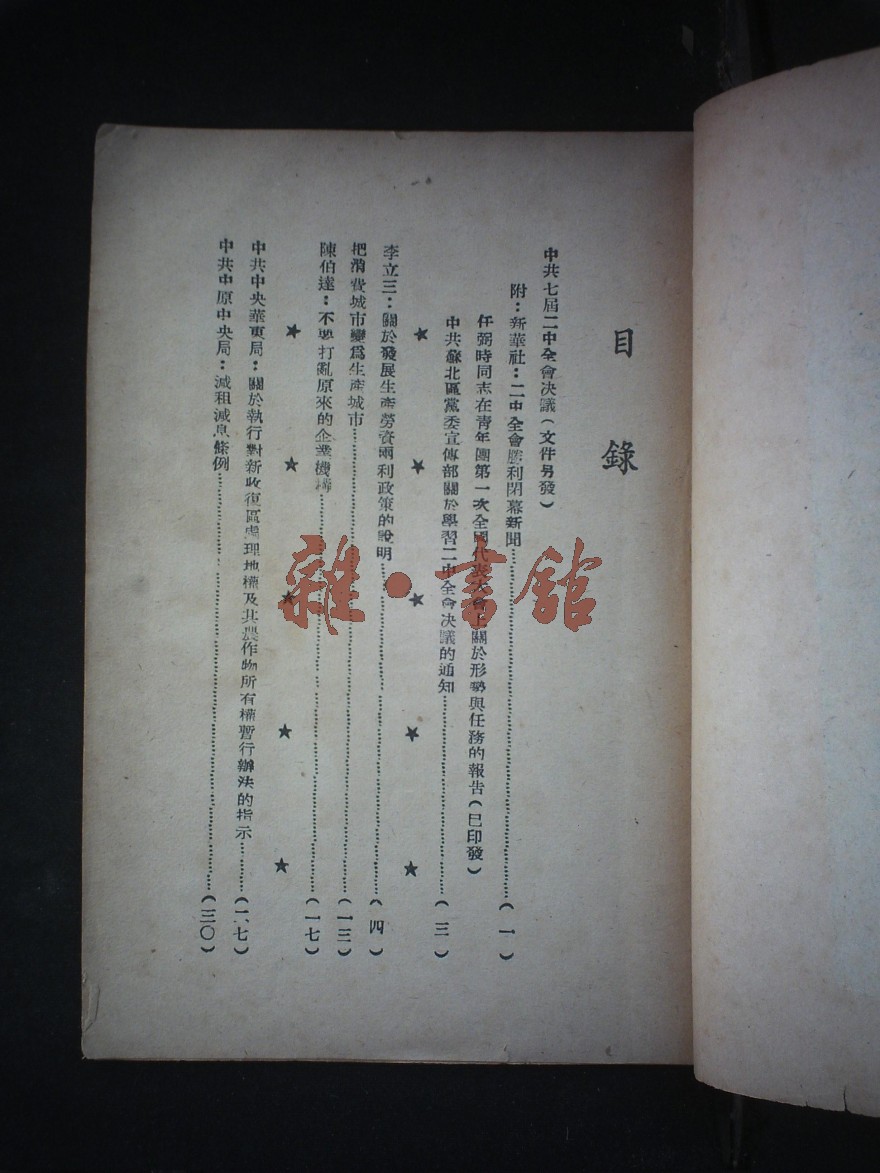 目錄
中共七屆二中全會决議(文件另發)
附:新華社:二中全會勝利閉幕新聞……(一)
任弼時同志在青年團第一次全國代表大會上關於形勢與任務的報告(已印發)
中共蘇北區黨委宣傳部關於學習二中全會决議的通知……(三)
★ ★ ★ ★ ★
李立三:關於發展生產勞資兩利政策的說明……(四)
把消費城市變爲生產城市……(一三)
陳伯達:不要打亂原來的企業機構……(一七)
★ ★ ★ ★ ★
中共中央華東局:關於執行對新收復區處理地權及其農作物所有權暫行辦法的指示……(二七)
中共中原中央局:減租減息條例……(三〇)
雜·書館